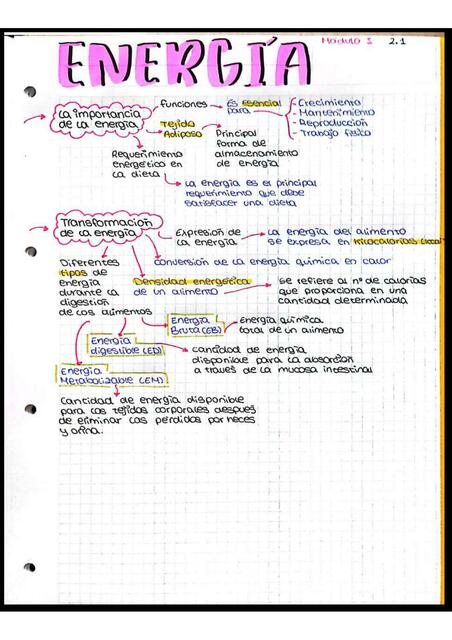 ENERGÍA
Módulo 1 2.1
La importancia
de la energía
funciones
Es esencial
para
- Crecimiento
- Mantenimiento
- Reproducción
- Trabajo físico
Tejido
Adiposo
Principal
forma de
almacenamiento
de energía
Requerimiento
energético en
la dieta
La energía es el principal
requerimiento que debe
satisfacer una dieta
Transformación
de la energía
Expresión de
la energía
La energía del alimento
se expresa en kilocalorías (kcal)
Conversión de la energía química en calor
Diferentes
tipos de
energía
durante la
digestión
de los alimentos
Densidad energética
de un alimento
Se refiere al nº de calorías
que proporciona en una
cantidad determinada
Energía
Bruta (EB)
Energía química
total de un alimento
Energía
digestible (ED)
Cantidad de energía
disponible para la absorción
a través de la mucosa intestinal
Energía
Metabolizable (EM)
Cantidad de energía disponible
para los tejidos corporales después
de eliminar las pérdidas por heces
y orina.